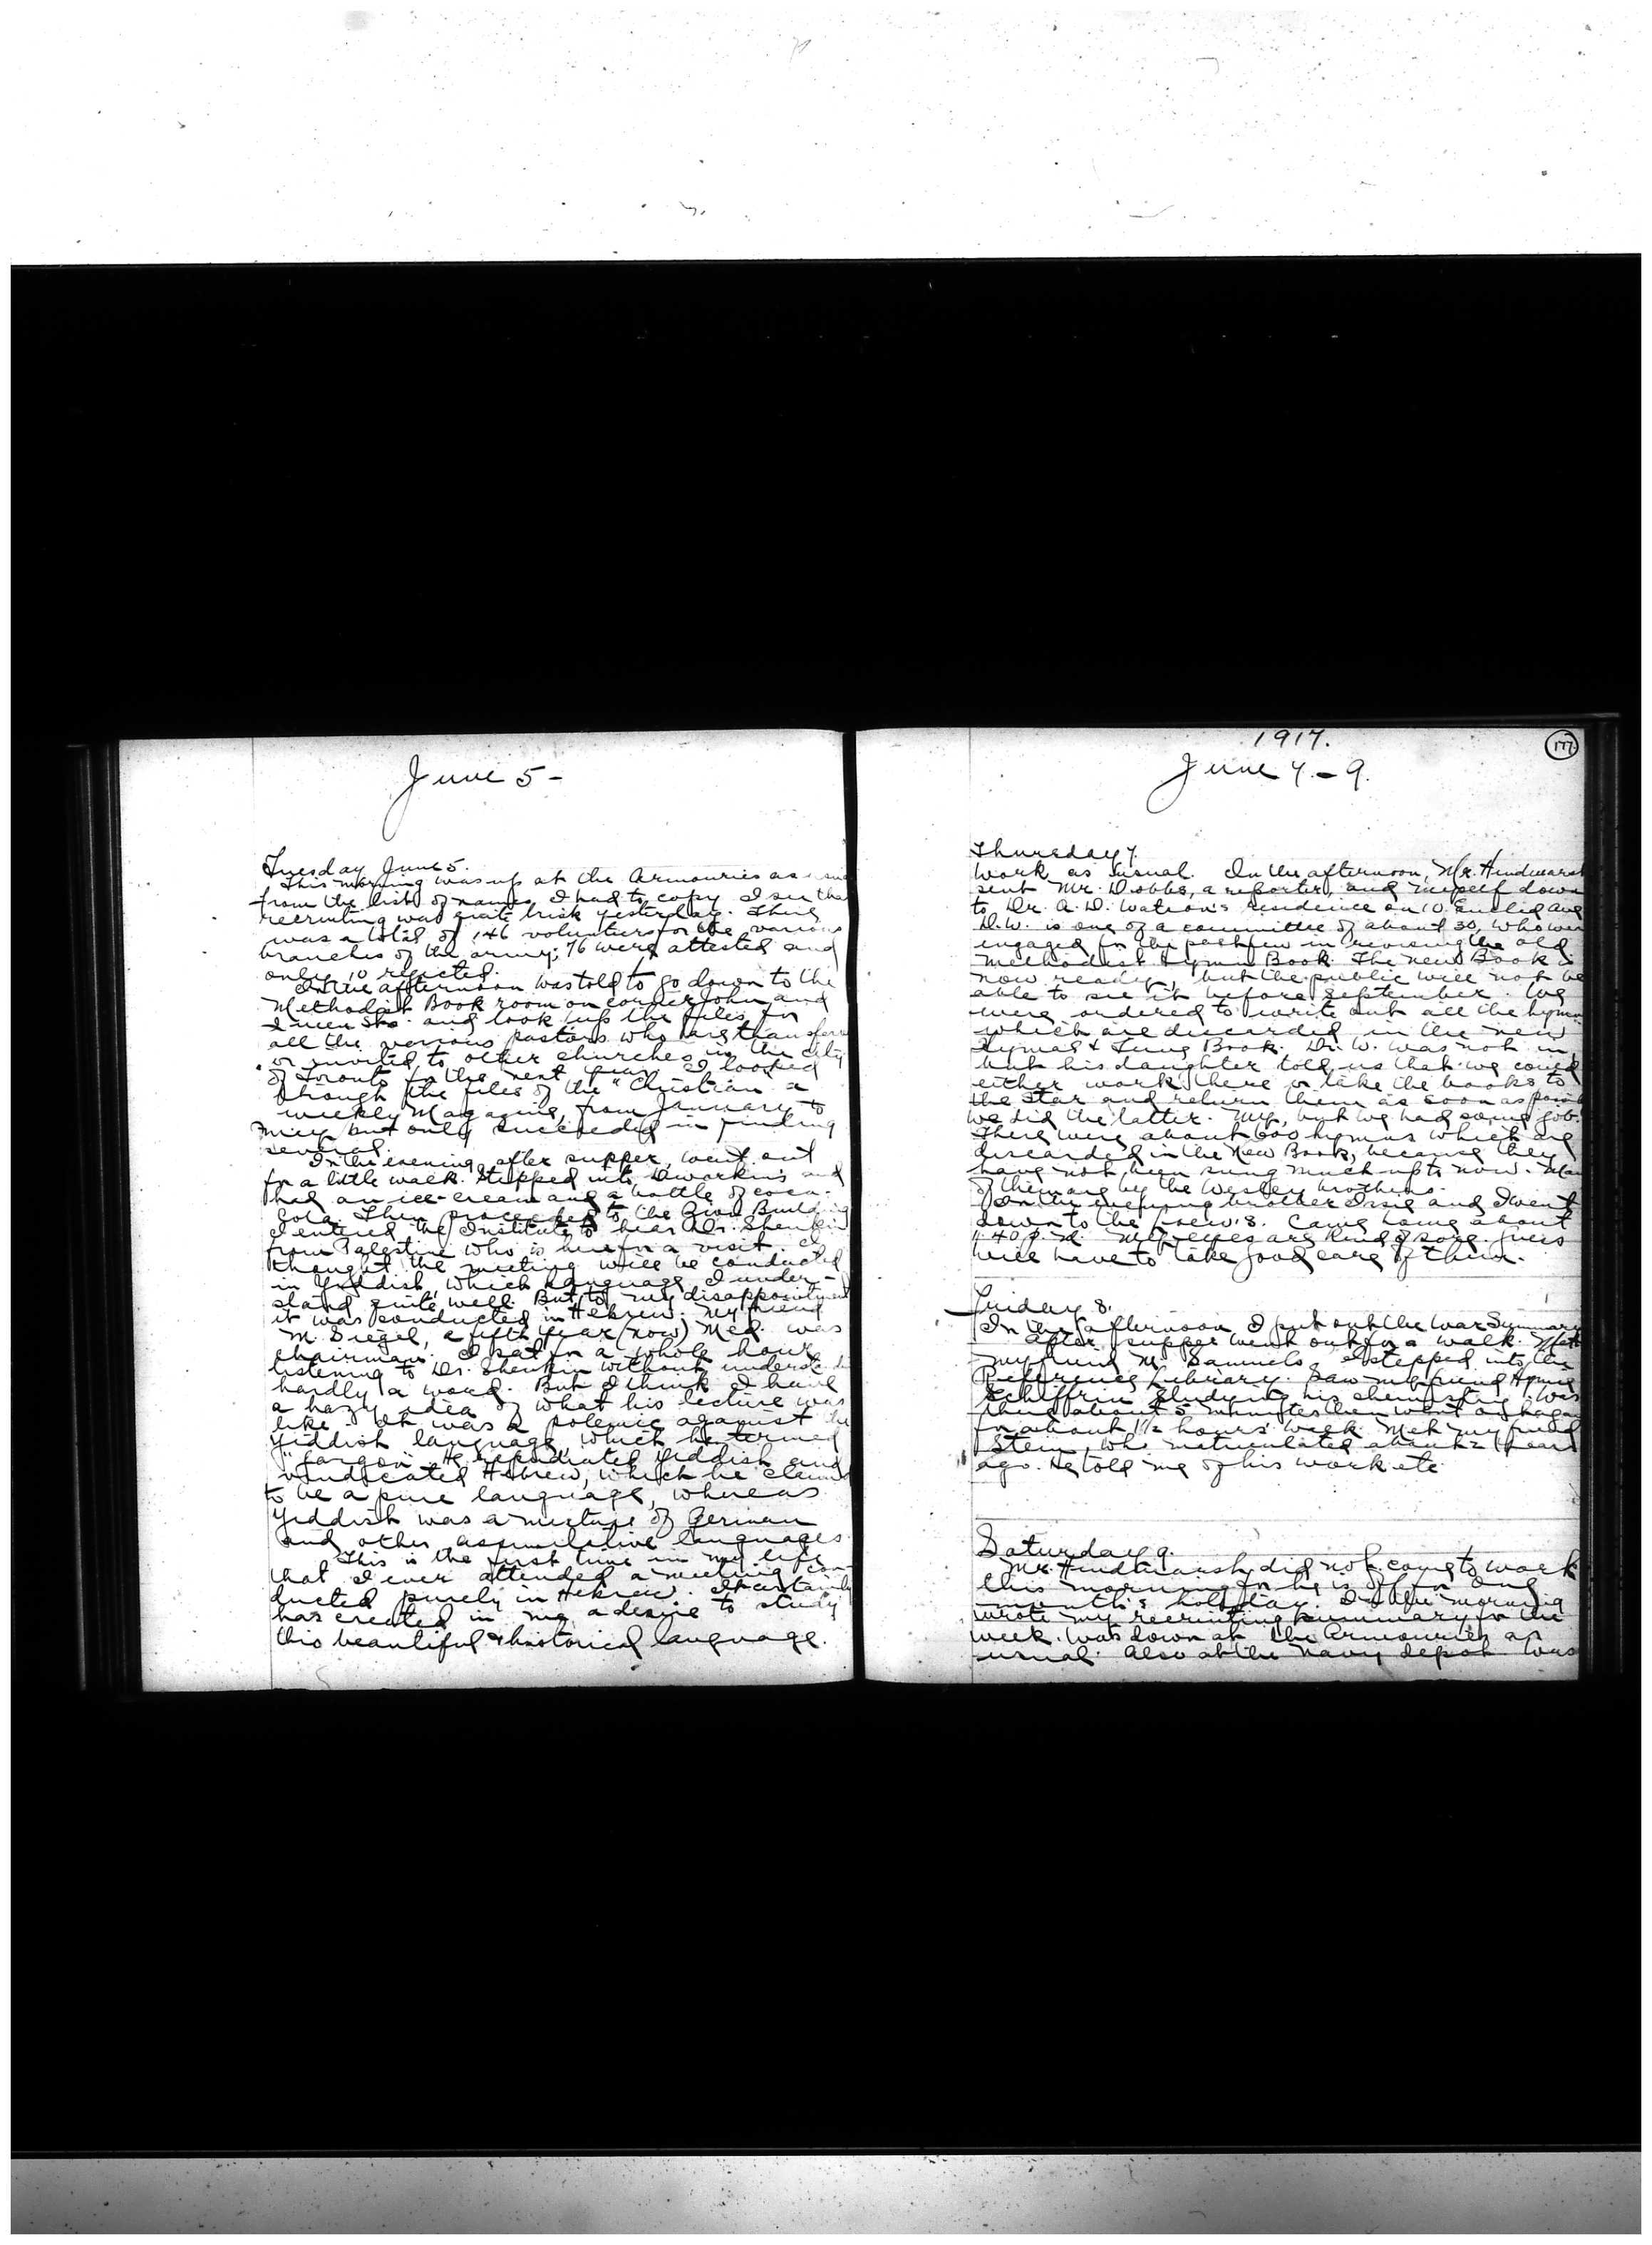 June 5 -
Tuesday June 5.
This morning was up at the Armouries as
from the list of names I had to copy I see tha
recruiting was quite brisk yesterday. There
was a total of 146 volunteers for the various
branches of the army; 76 were attested and
only 10 rejected.
In the afternoon was told to go down to the
Methodist Book room on corner John and
Queen Sts. and look up the files for
all the various pastors who are transferr
or invited to other churches in the city
of Toronto for the next year. I looked
through the files of the "Christian a
weekly Magazine, from January to
May but only succeeded in finding
several.
In the evening after supper, went out
for a little walk. Stepped into Dworkin's and
had an ice-cream and a bottle of coca-
cola. Then proceeded to the Zion Building
I entered the Institute to hear Dr. Shenkin
from Palestine who is here for a visit. I
thought the meeting will be conducted
in Yiddish, which language I under-
stand quite well. But to my disappointment
it was conducted in Hebrew. My friend
M. Siegel, a fifth year (now) Med. was
chairman. I sat for a whole hour
listening to Dr. Shenkin without understandi
hardly a word. But I think I have
a hazy idea of what his lecture was
like. It was a polemic against the
Yiddish language, which he termed
"jargon". He repudiated Yiddish and
vindicated Hebrew, which he claimed
to be a pure language, whereas
Yiddish was a mixture of German
and other assimilative languages.
This is the first time in my life
that I ever attended a meeting con-
ducted purely in Hebrew. It certainly
has created in me a desire to study
this beautiful & historical language.
1917.
177
June 7. - 9.
Thursday 7.
Work as usual. In the afternoon, Mr. Hindmarsh
sent Mr. Dobbs, a reporter, and myself down
to Dr. A. D. Watson's residence on 10 Euclid Ave
D.W. is one of a committee of about 30, who wer
engaged for the past few in revising the old
Methodist Hymn Book. The new Book is
now ready, but the public will not be
able to see it before September. We
were ordered to write out all the hymns
which are discarded in the new
Hymnal & Tune Book. Dr. W. was not in,
but his daughter told us that we could
either work there or take the books to
the Star and return them as soon as possib
We did the latter. My, but we had some job.
There were about 600 hymns which are
discarded in the New Book, because they
have not been sung much up to now. Man
of them are by the Wesley brothers.
In the evening brother Issie and I went
down to the Crew's. Came home about
11.40 p.m. My eyes are kind of sore. Guess
will have to take good care of them.
Friday 8.
In the afternoon I put out the War Summary
After supper went out for a walk. Met
my friend M. Samuels. I stepped into the
Reference Library. Saw my friend Hymie
Schiffrin studying his chemistry. Was
there about 5 minutes then went
for about 1½ hours' walk. Met my friend
Stein, who matriculated about 2 years
ago. He told me of his work etc.
Saturday 9.
Mr. Hindmarsh did not come to work
this morning for he is off for one
month's holiday. In the morning
wrote my recruiting summary for the
week. Was down at the Armouries as
usual. Also at the Navy depot. Was